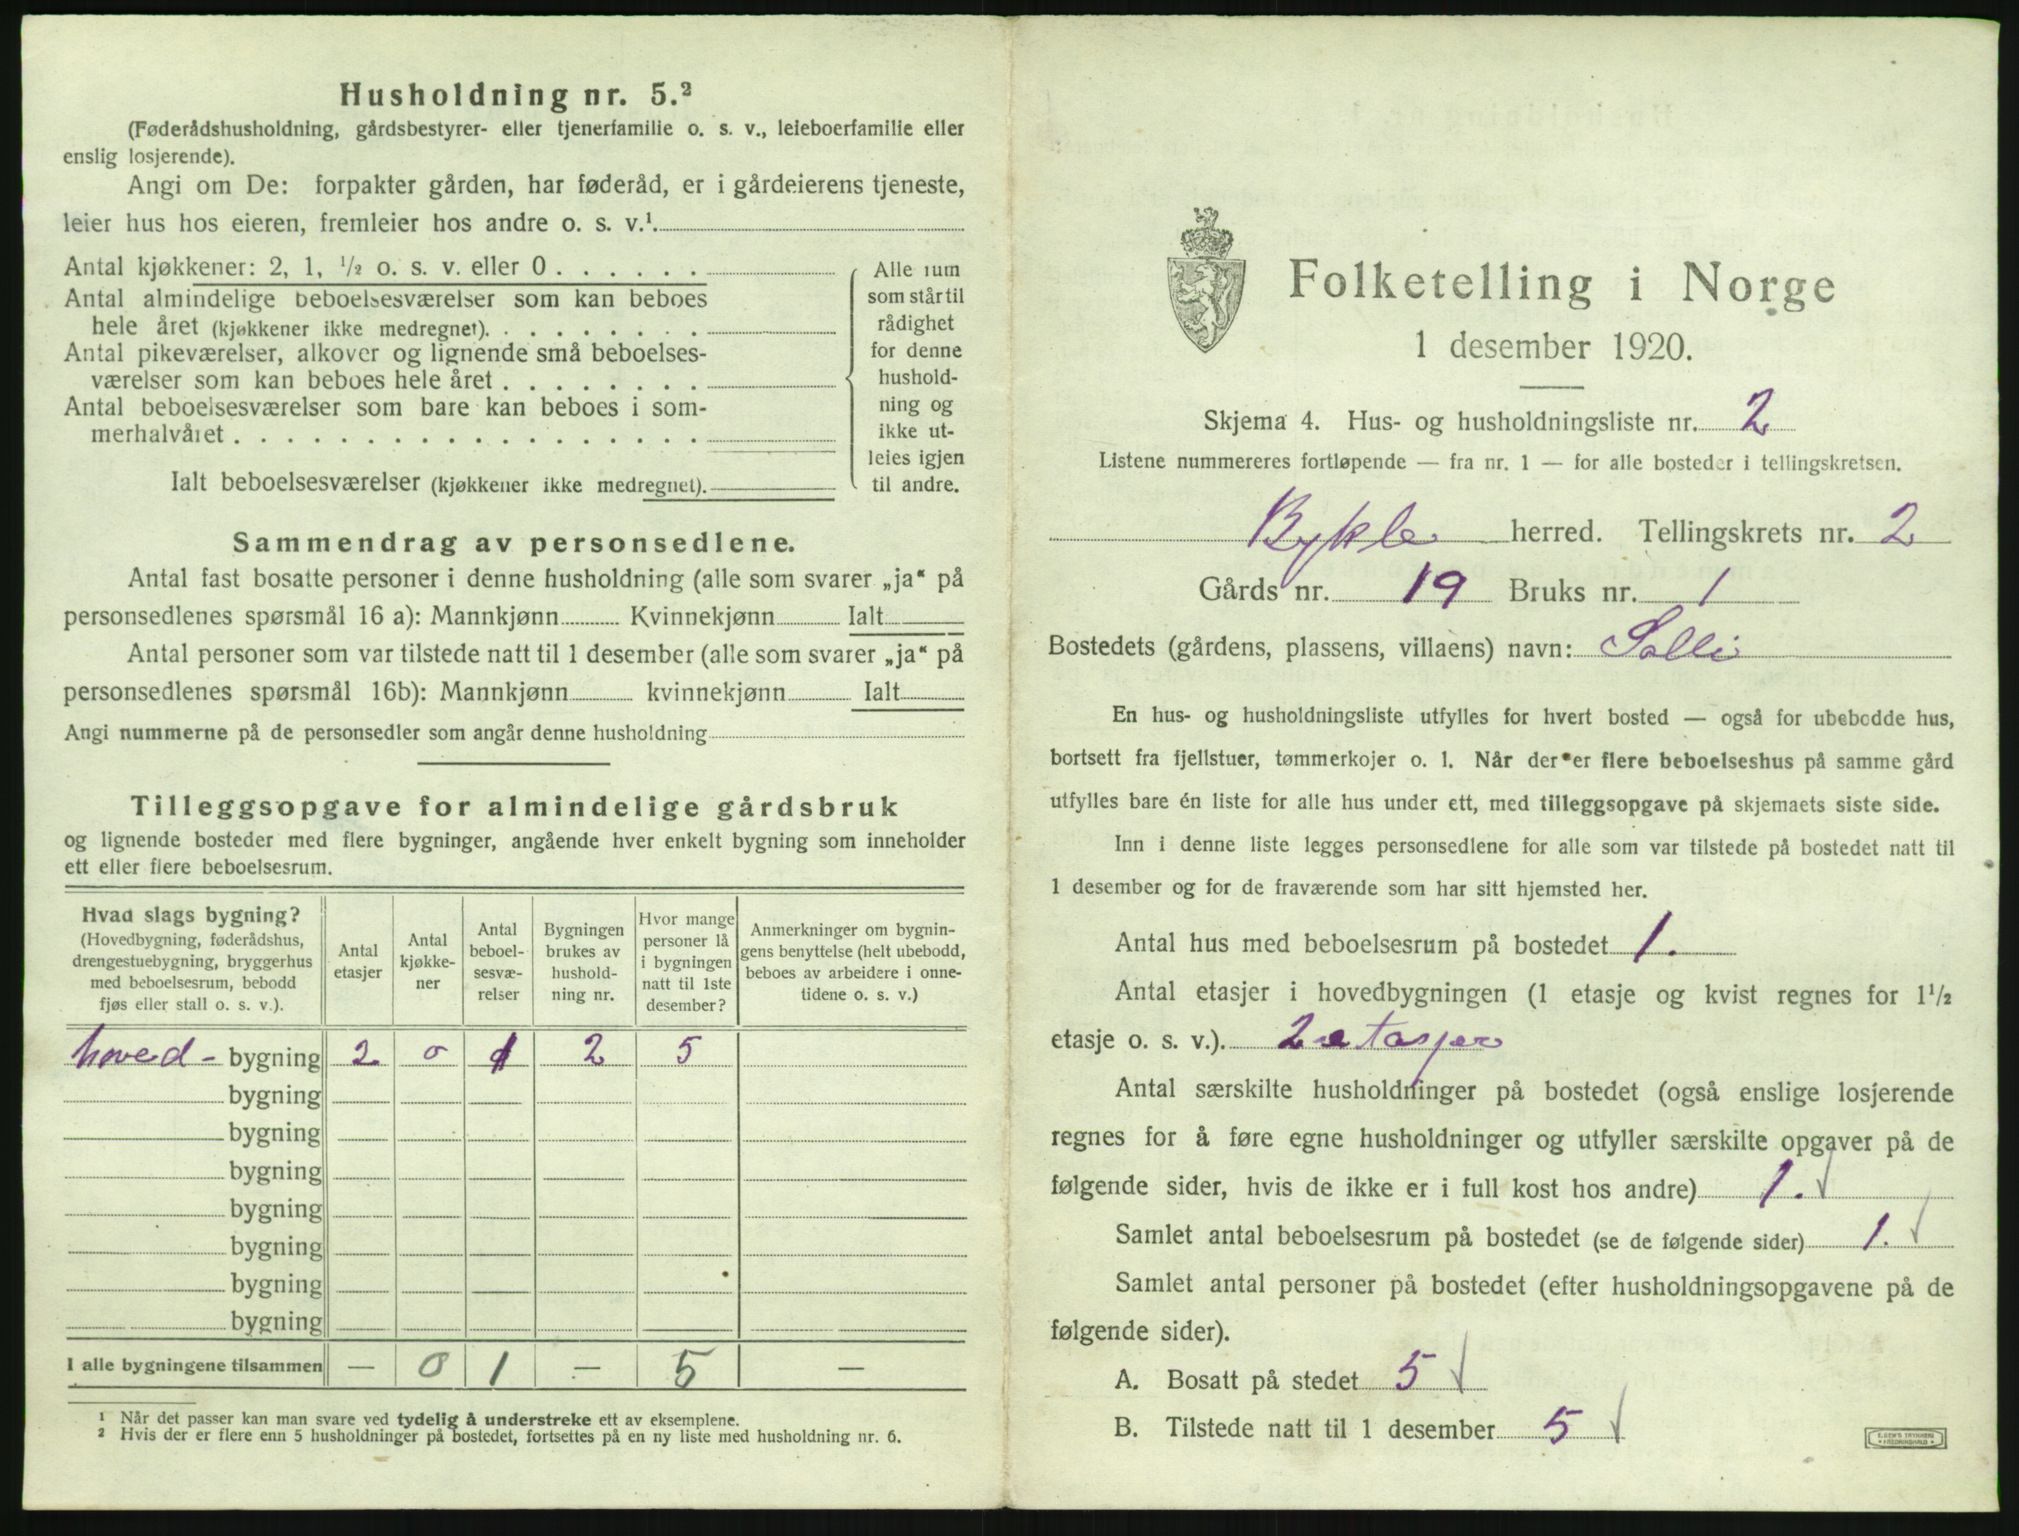 Husholdning nr. 5.²
(Føderådshusholdning, gårdsbestyrer- eller tjenerfamilie o. s. v., leieboerfamilie eller
enslig losjerende).
Angi om De: forpakter gården, har føderåd, er i gårdeierens tjeneste,
leier hus hos eieren, fremleier hos andre o. s. v.¹
Antal kjøkkener: 2, 1, ½ o. s. v. eller 0 . . . . . .
Antal almindelige beboelsesværelser som kan beboes
hele året (kjøkkener ikke medregnet). . . . . . . . .
Antal pikeværelser, alkover og lignende små beboelses-
værelser som kan beboes hele året . . . . . . . .
Antal beboelsesværelser som bare kan beboes i som-
merhalvåret . . . . . . . . . . . . . . . . . .
Ialt beboelsesværelser (kjøkkener ikke medregnet).
Alle rum
som står til
rådighet
for denne
hushold-
ning og
ikke ut-
leies igjen
til andre.
Sammendrag av personsedlene.
Antal fast bosatte personer i denne husholdning (alle som svarer „ja“ på
personsedlenes spørsmål 16 a): Mannkjønn Kvinnekjønn Ialt
Antal personer som var tilstede natt til 1 desember (alle som svarer „ja“ på
personsedlenes spørsmål 16b): Mannkjønn kvinnekjønn Ialt
Angi nummerne på de personsedler som angår denne husholdning
Tilleggsopgave for almindelige gårdsbruk
og lignende bosteder med flere bygninger, angående hver enkelt bygning som inneholder
ett eller flere beboelsesrum.
Hvad slags bygning?
(Hovedbygning, føderådshus,
drengestuebygning, bryggerhus
med beboelsesrum, bebodd
fjøs eller stall o. s. v.).
Antal
etasjer
Antal
kjøkke-
ner
Antal
beboel-
sesvæ-
relser
Bygningen
brukes av
hushold-
ning nr.
Hvor mange
personer lå
i bygningen
natt til 1ste
desember?
Anmerkninger om bygnin-
gens benyttelse (helt ubebodd,
beboes av arbeidere i onne-
tidene o. s. v.)
hoved- bygning 2 0 1 2 5
bygning
bygning
bygning
bygning
bygning
bygning
bygning
I alle bygningene tilsammen — 0 1 — 5 —
¹ Når det passer kan man svare ved tydelig å understreke ett av eksemplene.
² Hvis der er flere enn 5 husholdninger på bostedet, fortsettes på en ny liste med husholdning nr. 6.
Folketelling i Norge
1 desember 1920.
Skjema 4. Hus- og husholdningsliste nr. 2
Listene nummereres fortløpende — fra nr. 1 — for alle bosteder i tellingskretsen.
Bykle herred. Tellingskrets nr. 2
Gårds nr. 19 Bruks nr. 1
Bostedets (gårdens, plassens, villaens) navn: Solli
En hus- og husholdningsliste utfylles for hvert bosted — også for ubebodde hus,
bortsett fra fjellstuer, tømmerkojer o. l. Når der er flere beboelseshus på samme gård
utfylles bare én liste for alle hus under ett, med tilleggsopgave på skjemaets siste side.
Inn i denne liste legges personsedlene for alle som var tilstede på bostedet natt til
1 desember og for de fraværende som har sitt hjemsted her.
Antal hus med beboelsesrum på bostedet 1.
Antal etasjer i hovedbygningen (1 etasje og kvist regnes for 1½
etasje o. s. v.). 2 etasjer
Antal særskilte husholdninger på bostedet (også enslige losjerende
regnes for å føre egne husholdninger og utfyller særskilte opgaver på de
følgende sider, hvis de ikke er i full kost hos andre) 1. √
Samlet antal beboelsesrum på bostedet (se de følgende sider) 1. √
Samlet antal personer på bostedet (efter husholdningsopgavene på de
følgende sider).
A. Bosatt på stedet 5 √
B. Tilstede natt til 1 desember 5 √